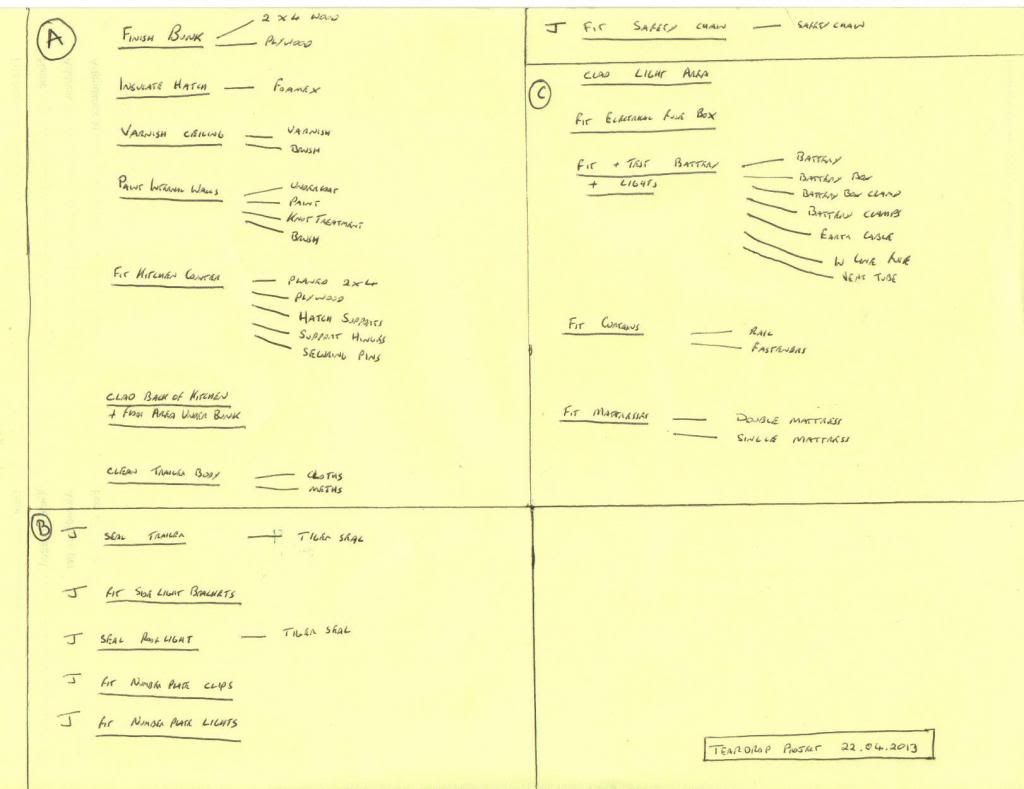 A
FINISH BUNK
2 x 4 WOOD
PLYWOOD
INSULATE HATCH
FOAMEX
VARNISH CEILING
VARNISH
BRUSH
PAINT INTERNAL WALLS
UNDERCOAT
PAINT
KNOT TREATMENT
BRUSH
FIT KITCHEN COUNTER
PLANED 2x4
PLYWOOD
HATCH SUPPORTS
SUPPORT HINGES
SECURING PINS
CLAD BACK OF KITCHEN
+ FOOT AREA UNDER BUNK
CLEAN TRAILER BODY
CLOTHS
METHS
B
J SEAL TRAILER
TIGER SEAL
J FIT SIDE LIGHT BRACKETS
J SEAL ROOF LIGHT
TIGER SEAL
J FIT NUMBER PLATE CLIPS
J FIT NUMBER PLATE LIGHTS
J FIT SAFETY CHAIN
SAFETY CHAIN
C
CLAD LIGHT AREA
FIT ELECTRICAL FUSE BOX
FIT + TEST BATTERY
+ LIGHTS
BATTERY
BATTERY BOX
BATTERY BOX CLAMP
BATTERY CLAMPS
EARTH CABLE
IN LINE FUSE
VENT TUBE
FIT CURTAINS
RAIL
FASTENERS
FIT MATTRESSES
DOUBLE MATTRESS
SINGLE MATTRESS
TEARDROP PROJECT 22.04.2013